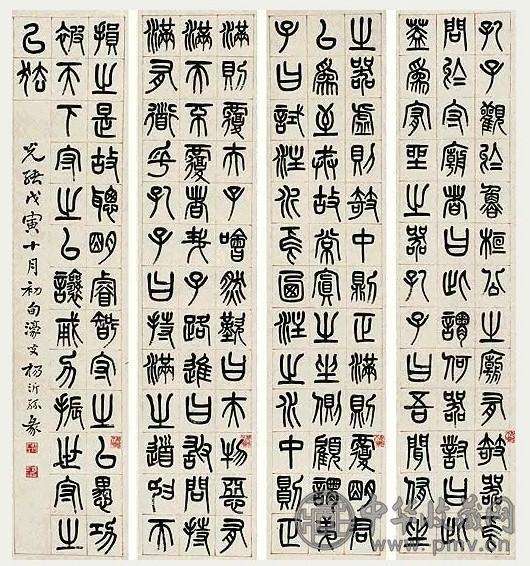 孔子觀於魯桓公之廟有欹器焉
問於守廟者曰此謂何器對曰此
蓋爲宥坐之器孔子曰吾聞宥坐
之器虛則欹中則正滿則覆明君
以爲至誡故常寘之坐側顧謂弟
子曰試注水焉迺注之水中則正
滿則覆夫子喟然歎曰夫物惡有
滿而不覆者哉子路進曰敢問持
滿有道乎孔子曰持滿之道挹而
損之是故聰明睿智守之以愚功
被天下守之以讓勇力振世守之
以怯
光緒戊寅十月初旬濠叟楊沂孫篆
中华收藏网
www.pmv.cn